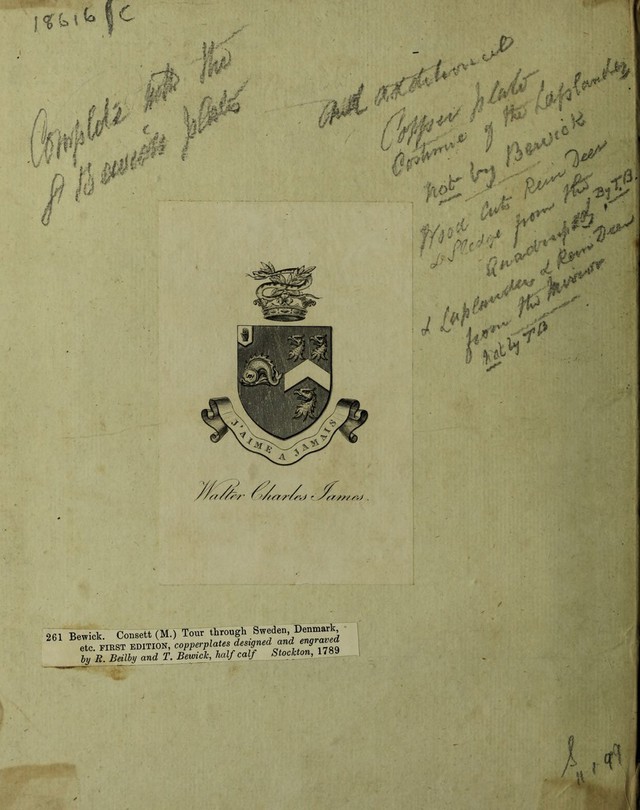 18616/C
Complete with the
Bewick plates
and additional
Copper plate
Costume of the Laplanders
not by Bewick
Wood Cuts Rein Deer
& Sledge from the
Quadrupeds By T.B.
& Laplanders & Rein Deer
from the Mirror
Not by TB
J'AIME A JAMAIS
Walter Charles James.
261 Bewick. Consett (M.) Tour through Sweden, Denmark,
etc. FIRST EDITION, copperplates designed and engraved
by R. Beilby and T. Bewick, half calf Stockton, 1789